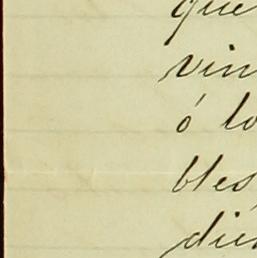 que
vin
ó lo
bles
dié